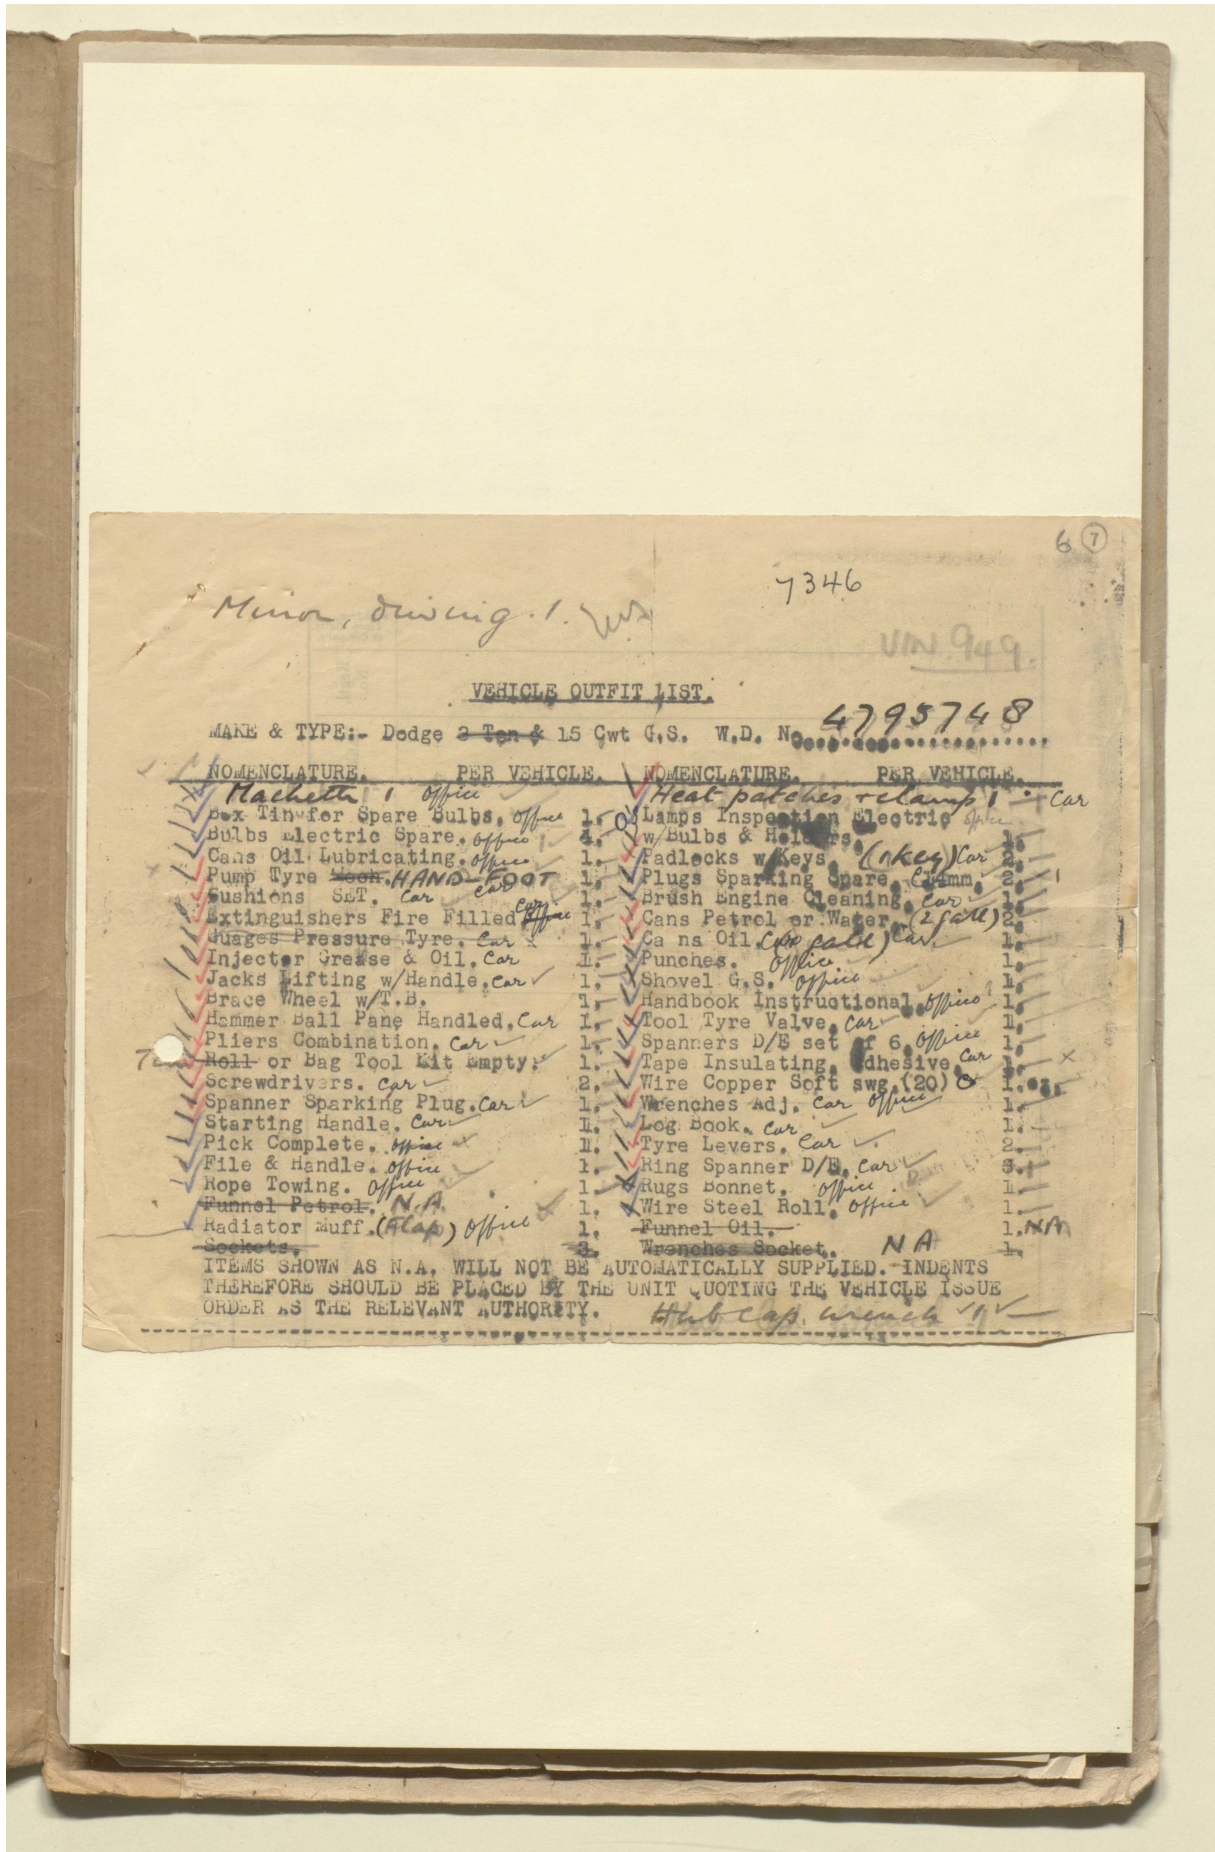 6 7
7346
Mirror, driving. 1.
VIN 949.
VEHICLE OUTFIT LIST.
MAKE & TYPE:- Dodge 2 Ton & 15 Cwt G.S. W.D. No. 4795748
NOMENCLATURE. PER VEHICLE.
Machette 1 Office
Box Tin for Spare Bulbs. Office 1.
Bulbs Electric Spare. Office 4.
Cans Oil Lubricating. Office 1.
Pump Tyre Mech. HAND-FOOT Car 1.
Cushions SET. Car 1.
Extinguishers Fire Filled Office Car 1.
Guages Pressure Tyre. Car 1.
Injector Grease & Oil. Car 1.
Jacks Lifting w/Handle. Car 1.
Brace Wheel w/T.B. 1.
Hammer Ball Pane Handled. Car 1.
Pliers Combination. Car 1.
Roll or Bag Tool Kit Empty. 1.
Screwdrivers. Car 2.
Spanner Sparking Plug. Car 1.
Starting Handle. Car 1.
Pick Complete. Office 1.
File & Handle. Office 1.
Rope Towing. Office 1.
Funnel Petrol. N.A. 1.
Radiator Muff. (Flap) Office 1.
Sockets. 3.
NOMENCLATURE. PER VEHICLE.
Heat patches & clamp 1 Car
Lamps Inspection Electric Office
w/Bulbs & Holders. 1.
Padlocks w/Keys. (1 Key) Car 2.
Plugs Sparking Spare. 14mm. 2. 1
Brush Engine Cleaning. Car 1.
Cans Petrol or Water. (2 gall) 2.
Ca ns Oil. Car 1.
Punches. Office 1.
Shovel G.S. Office 1.
Handbook Instructional. Office 1.
Tool Tyre Valve. Car 1.
Spanners D/E set of 6. Office 1.
Tape Insulating. Adhesive. Car 1.
Wire Copper Soft swg. (20) 1. oz.
Wrenches Adj. Car Office 1.
Log Book. Car 1.
Tyre Levers. Car 2.
Ring Spanner D/E. Car 3.
Rugs Bonnet. Office 1.
Wire Steel Roll. Office 1.
Funnel Oil. 1. NA
Wrenches Socket. NA 1.
ITEMS SHOWN AS N.A. WILL NOT BE AUTOMATICALLY SUPPLIED. INDENTS
THEREFORE SHOULD BE PLACED BY THE UNIT QUOTING THE VEHICLE ISSUE
ORDER AS THE RELEVANT AUTHORITY.
Hub cap wrench 1